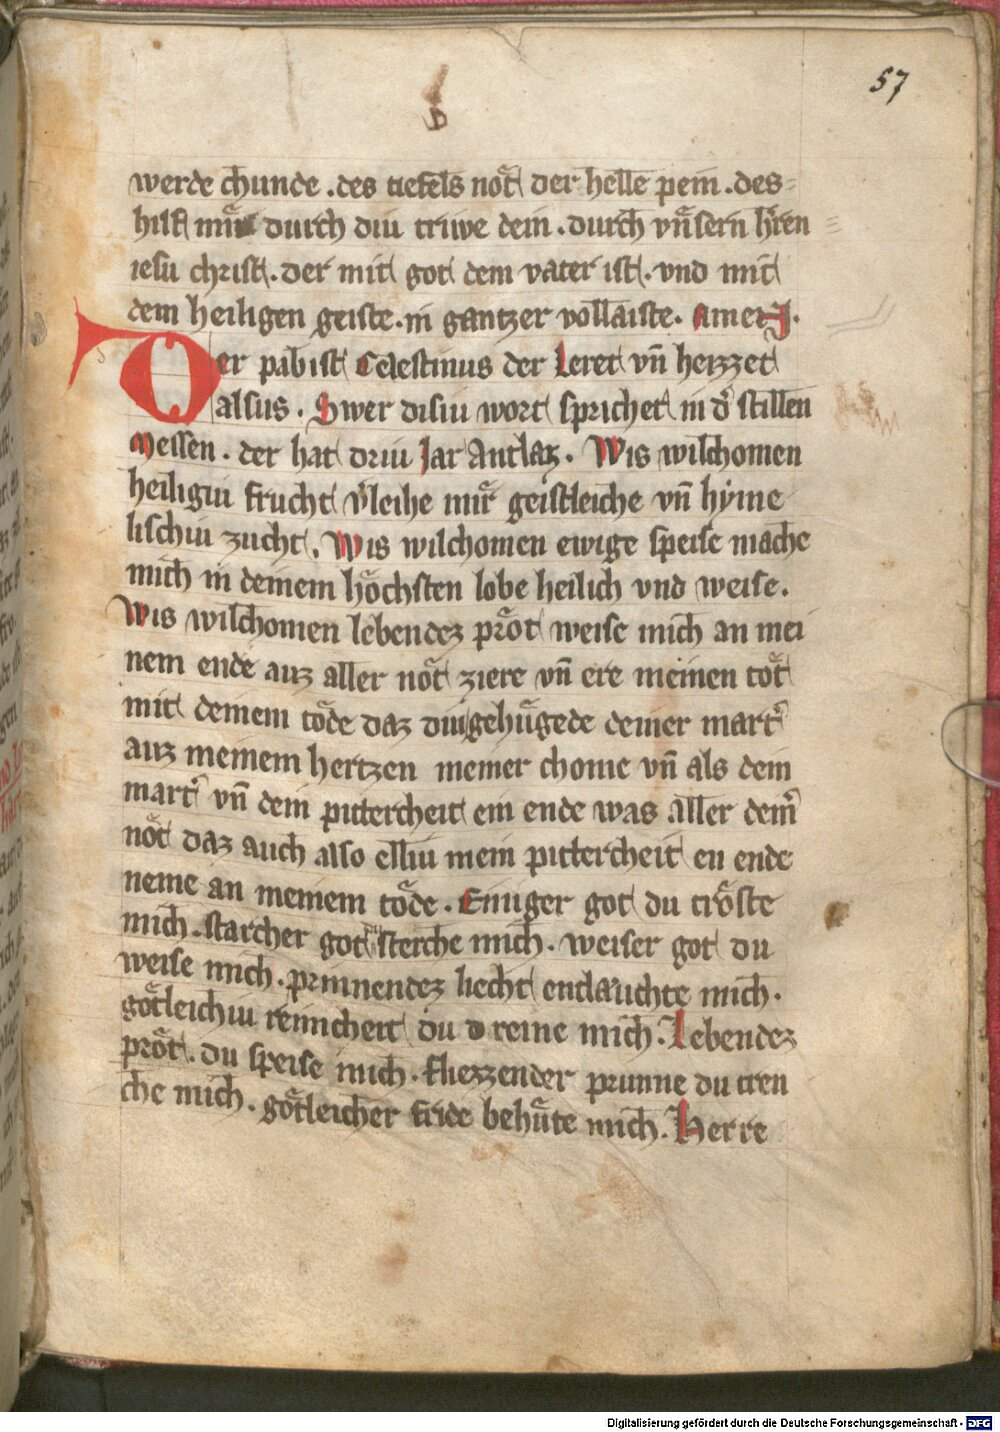 57
werde chunde .des tiefels not der helle pein .des
hilf mir durch diu triwe dein .durch vnsern hren
iesu christ. der mit got dem vater ist. vnd mit
dem heiligen geiste. in gantzer vollaiste. Amen.
Der pabist Celestinus der Leret vn̄ heizzet
alsus. Swer disiu wort sprichet in d͛ stillen
Messen. der hat driu Jar Antlaz. Wis wilchomen
heiligiu frucht v͛leihe mir geistleiche vn̄ hyme
lischiu zucht. Wis wilchomen ewige speise mache
mich in deinem hoͤchsten lobe heilich vnd weise.
Wis wilchomen lebendez proͤt weise mich an mei
nem ende auz aller noͤt ziere vn̄ ere meinen toͤt
mit deinem toͤde daz diu gehuͤgede deiner mart͛
auz meinem hertzen nemer chome vn̄ als dein
mart͛ vn̄ dein pittercheit ein ende was aller dein͛
noͤt daz auch also elliu mein pittercheit en ende
neme an meinem toͤde. Einiger got du troͤste
mich. starcher got sterche mich. weiser got du
weise mich. prinnendez liecht entlauchte mich.
goͤtleichiu reinichert du reine mich. Lebendez
proͤt. du speise mich. fliezzender prunne du tren
che mich. goͤtleicher fride behuͤte mich. Herre
Digitalisierung gefördert durch die Deutsche Forschungsgemeinschaft - DFG